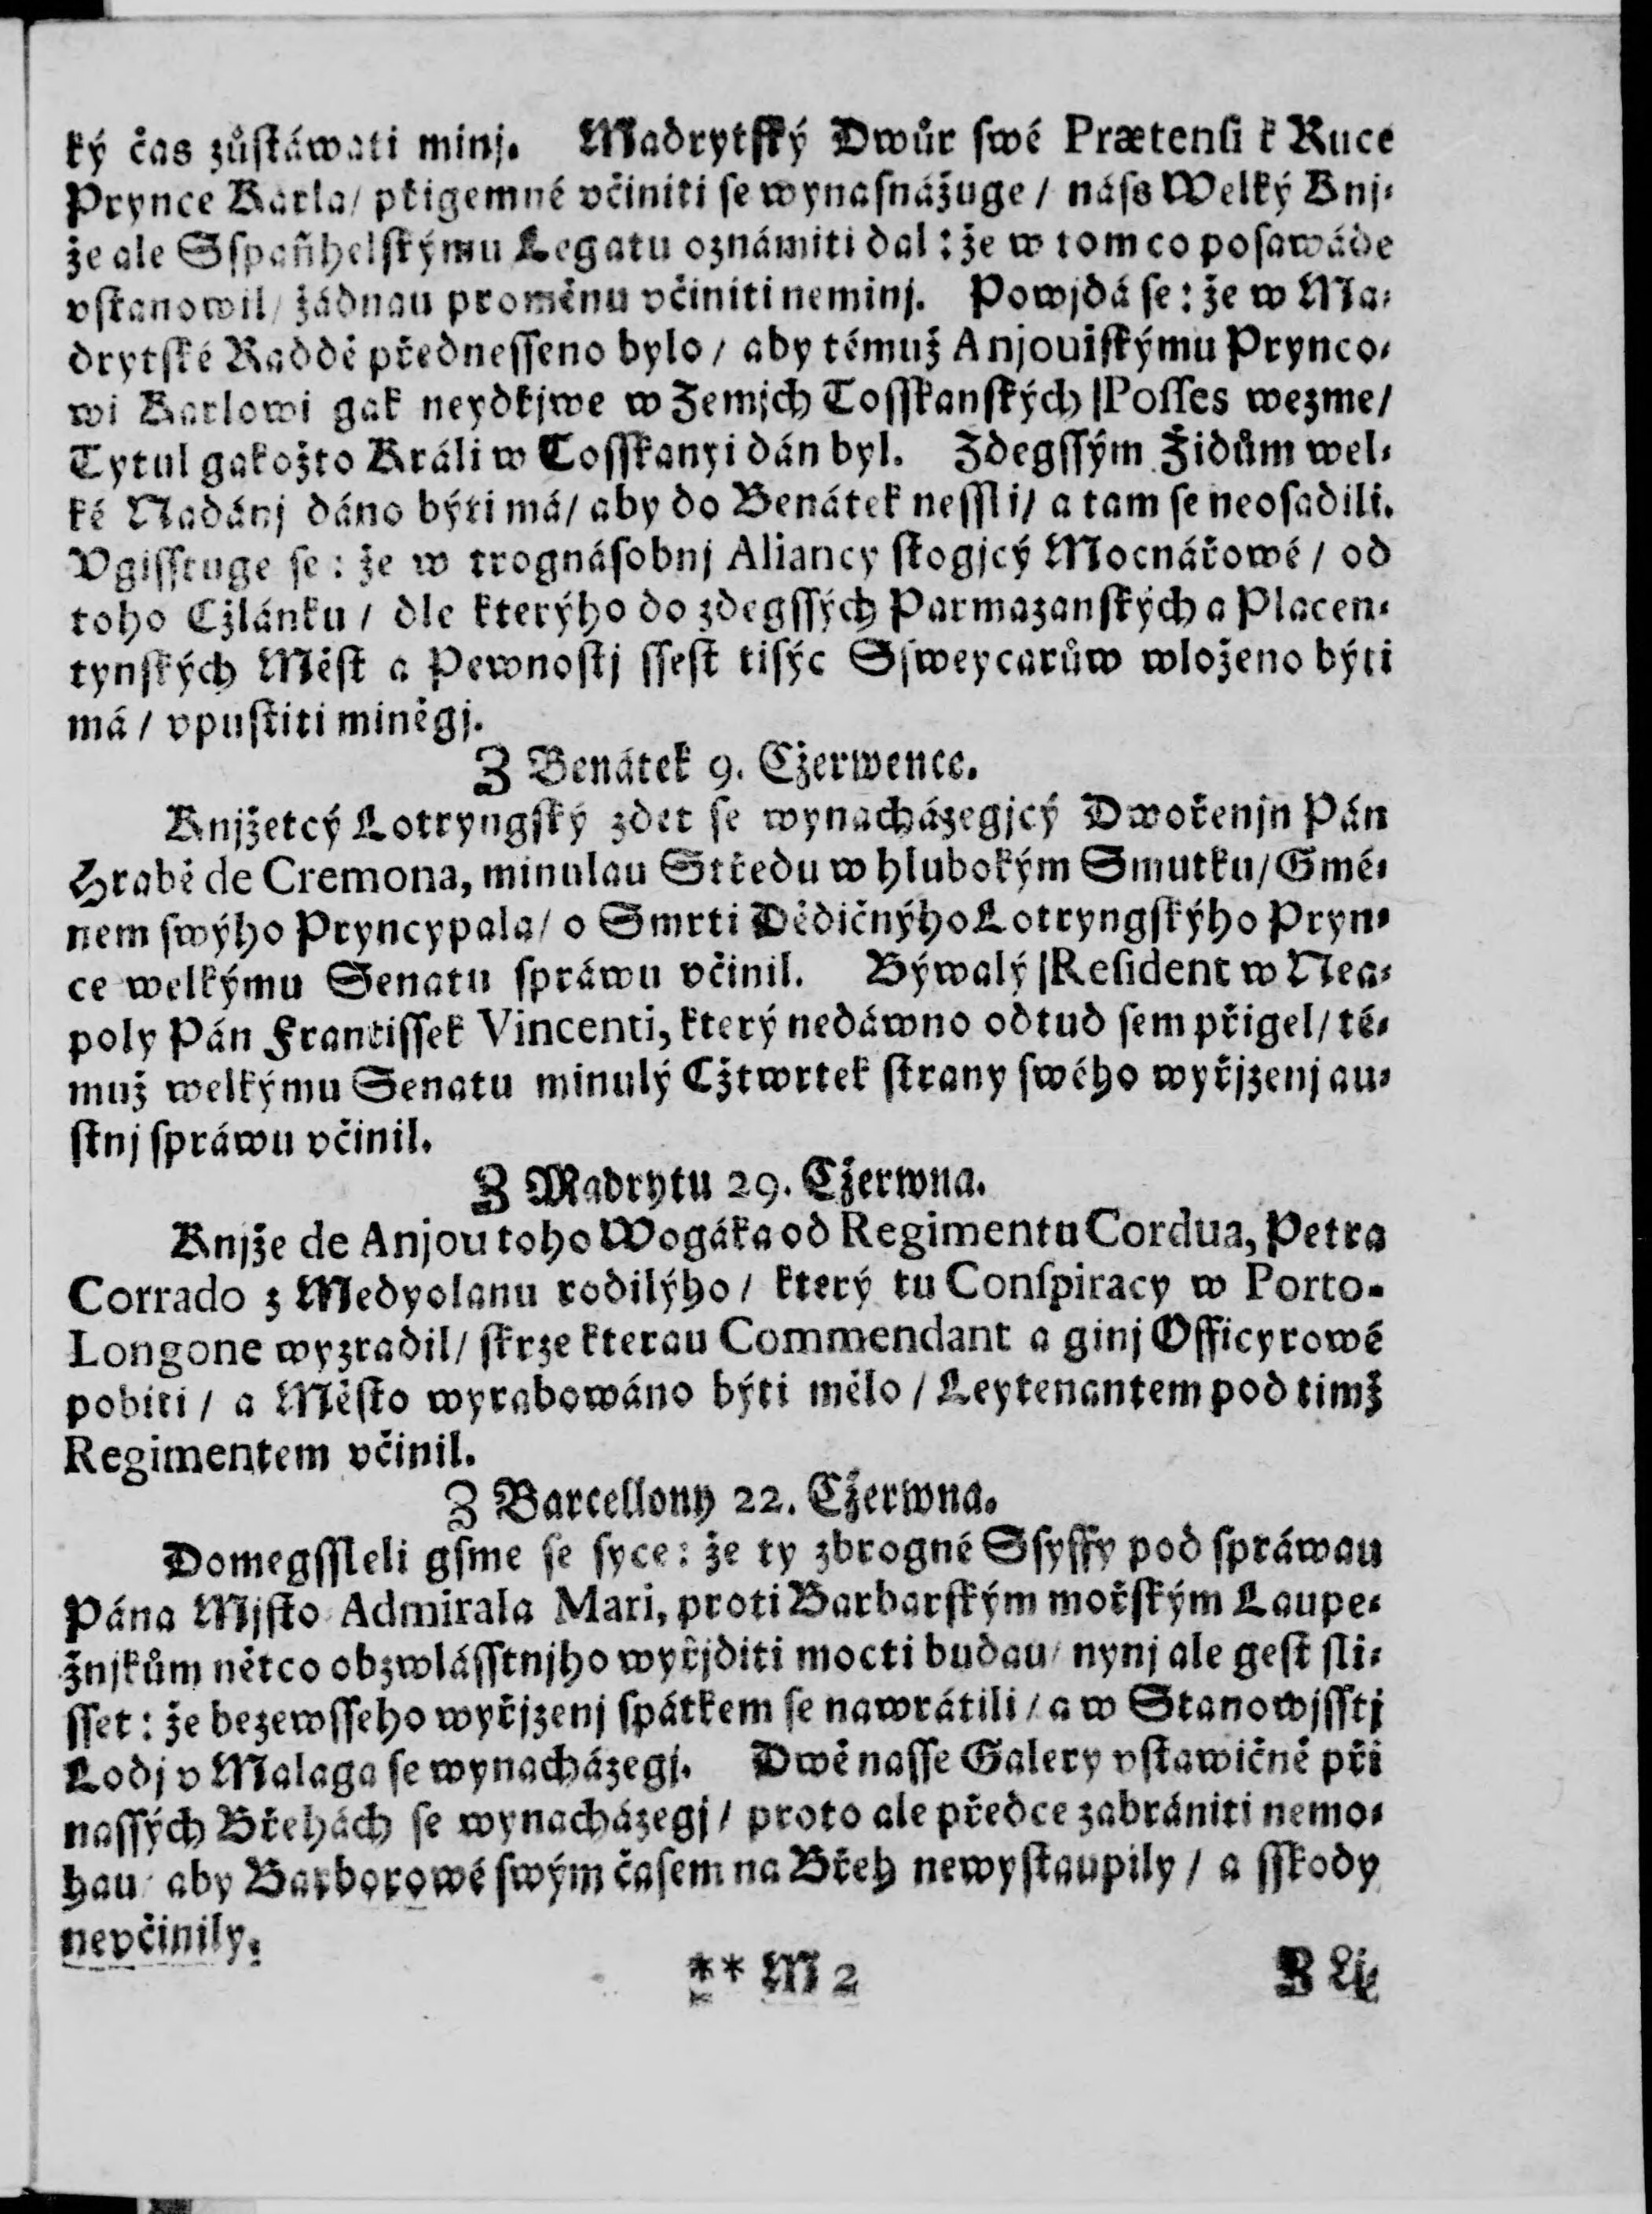 ký čas zůſtáwati minj. Madrytſký Dwůr ſwé Prætenſi k Ruce
Prynce Karla/ přigemné včiniti ſe wynaſnážuge / náſs Welký Knj⸗
že ale Sſpañhelſkýmu Legatu oznámiti dal : že w tom co poſawáde
vſtanowil/ žádnau proměnu včiniti neminj. Powjdá ſe : že w Ma⸗
drytſké Raddě přednesſeno bylo / aby témuž Anjouiſkýmu Prynco⸗
wi Karlowi gak neydřjwe w Zemjch Toſſkanſkých |Poſſes wezme/
Tytul gakožto Králi w Toſſkanyi dán byl. Zdegſſým Židům wel⸗
ké Nadánj dáno býti má/ aby do Benátek neſſli/ a tam ſe neoſadili.
Vgiſſtuge ſe : že w trognáſobnj Aliancy ſtogjcý Mocnářowé / od
toho Cžlánku / dle kterýho do zdegſſých Parmazanſkých a Placen⸗
tynſkých Měſt a Pewnoſtj ſſeſt tiſýc Sſweycarůw wloženo býti
má / vpuſtiti miněgj.
Z Benátek 9. Cžerwence.
Knjžetcý Lotryngſký zdet ſe wynacházegjcý Dwořenjn Pán
Hrabě de Cremona, minulau Středu w hlubokým Smutku/ Gmé⸗
nem ſwýho Pryncypala/ o Smrti Dědičnýho Lotryngſkýho Pryn⸗
ce welkýmu Senatu ſpráwu včinil. Býwalý |Reſident w Nea⸗
poly Pán Frantiſſek Vincenti, který nedáwno odtud ſem přigel/ té⸗
muž welkýmu Senatu minulý Cžtwrtek ſtrany ſwého wyřjzenj au⸗
ſtnj ſpráwu včinil.
Z Madrytu 29. Cžerwna.
Knjže de Anjou toho Wogáka od Regimentu Cordua, Petra
Corrado z Medyolanu rodilýho / který tu Conſpiracy w Porto-
Longone wyzradil/ ſkrze kterau Commendant a ginj Officyrowé
pobiti / a Měſto wyrabowáno býti mělo / Leytenantem pod timž
Regimentem včinil.
Z Barcellony 22. Cžerwna.
Domegſſleli gſme ſe ſyce : že ty zbrogné Sſyffy pod ſpráwau
Pána Mjſto Admirala Mari, proti Barbarſkým mořſkým Laupe⸗
žnjkům nětco obzwláſſtnjho wyřjditi mocti budau/ nynj ale geſt ſli⸗
ſſet : že bezewſſeho wyřjzenj ſpátkem ſe nawrátili / a w Stanowjſſtj
Lodj v Malaga ſe wynacházegj. Dwě naſſe Galery vſtawičně při
naſſých Břehách ſe wynacházegj / proto ale předce zabrániti nemo⸗
hau/ aby Barborowé ſwým časem na Břeh newyſtaupily / a ſſkody
nevčinily.
** M 2 Z Lij